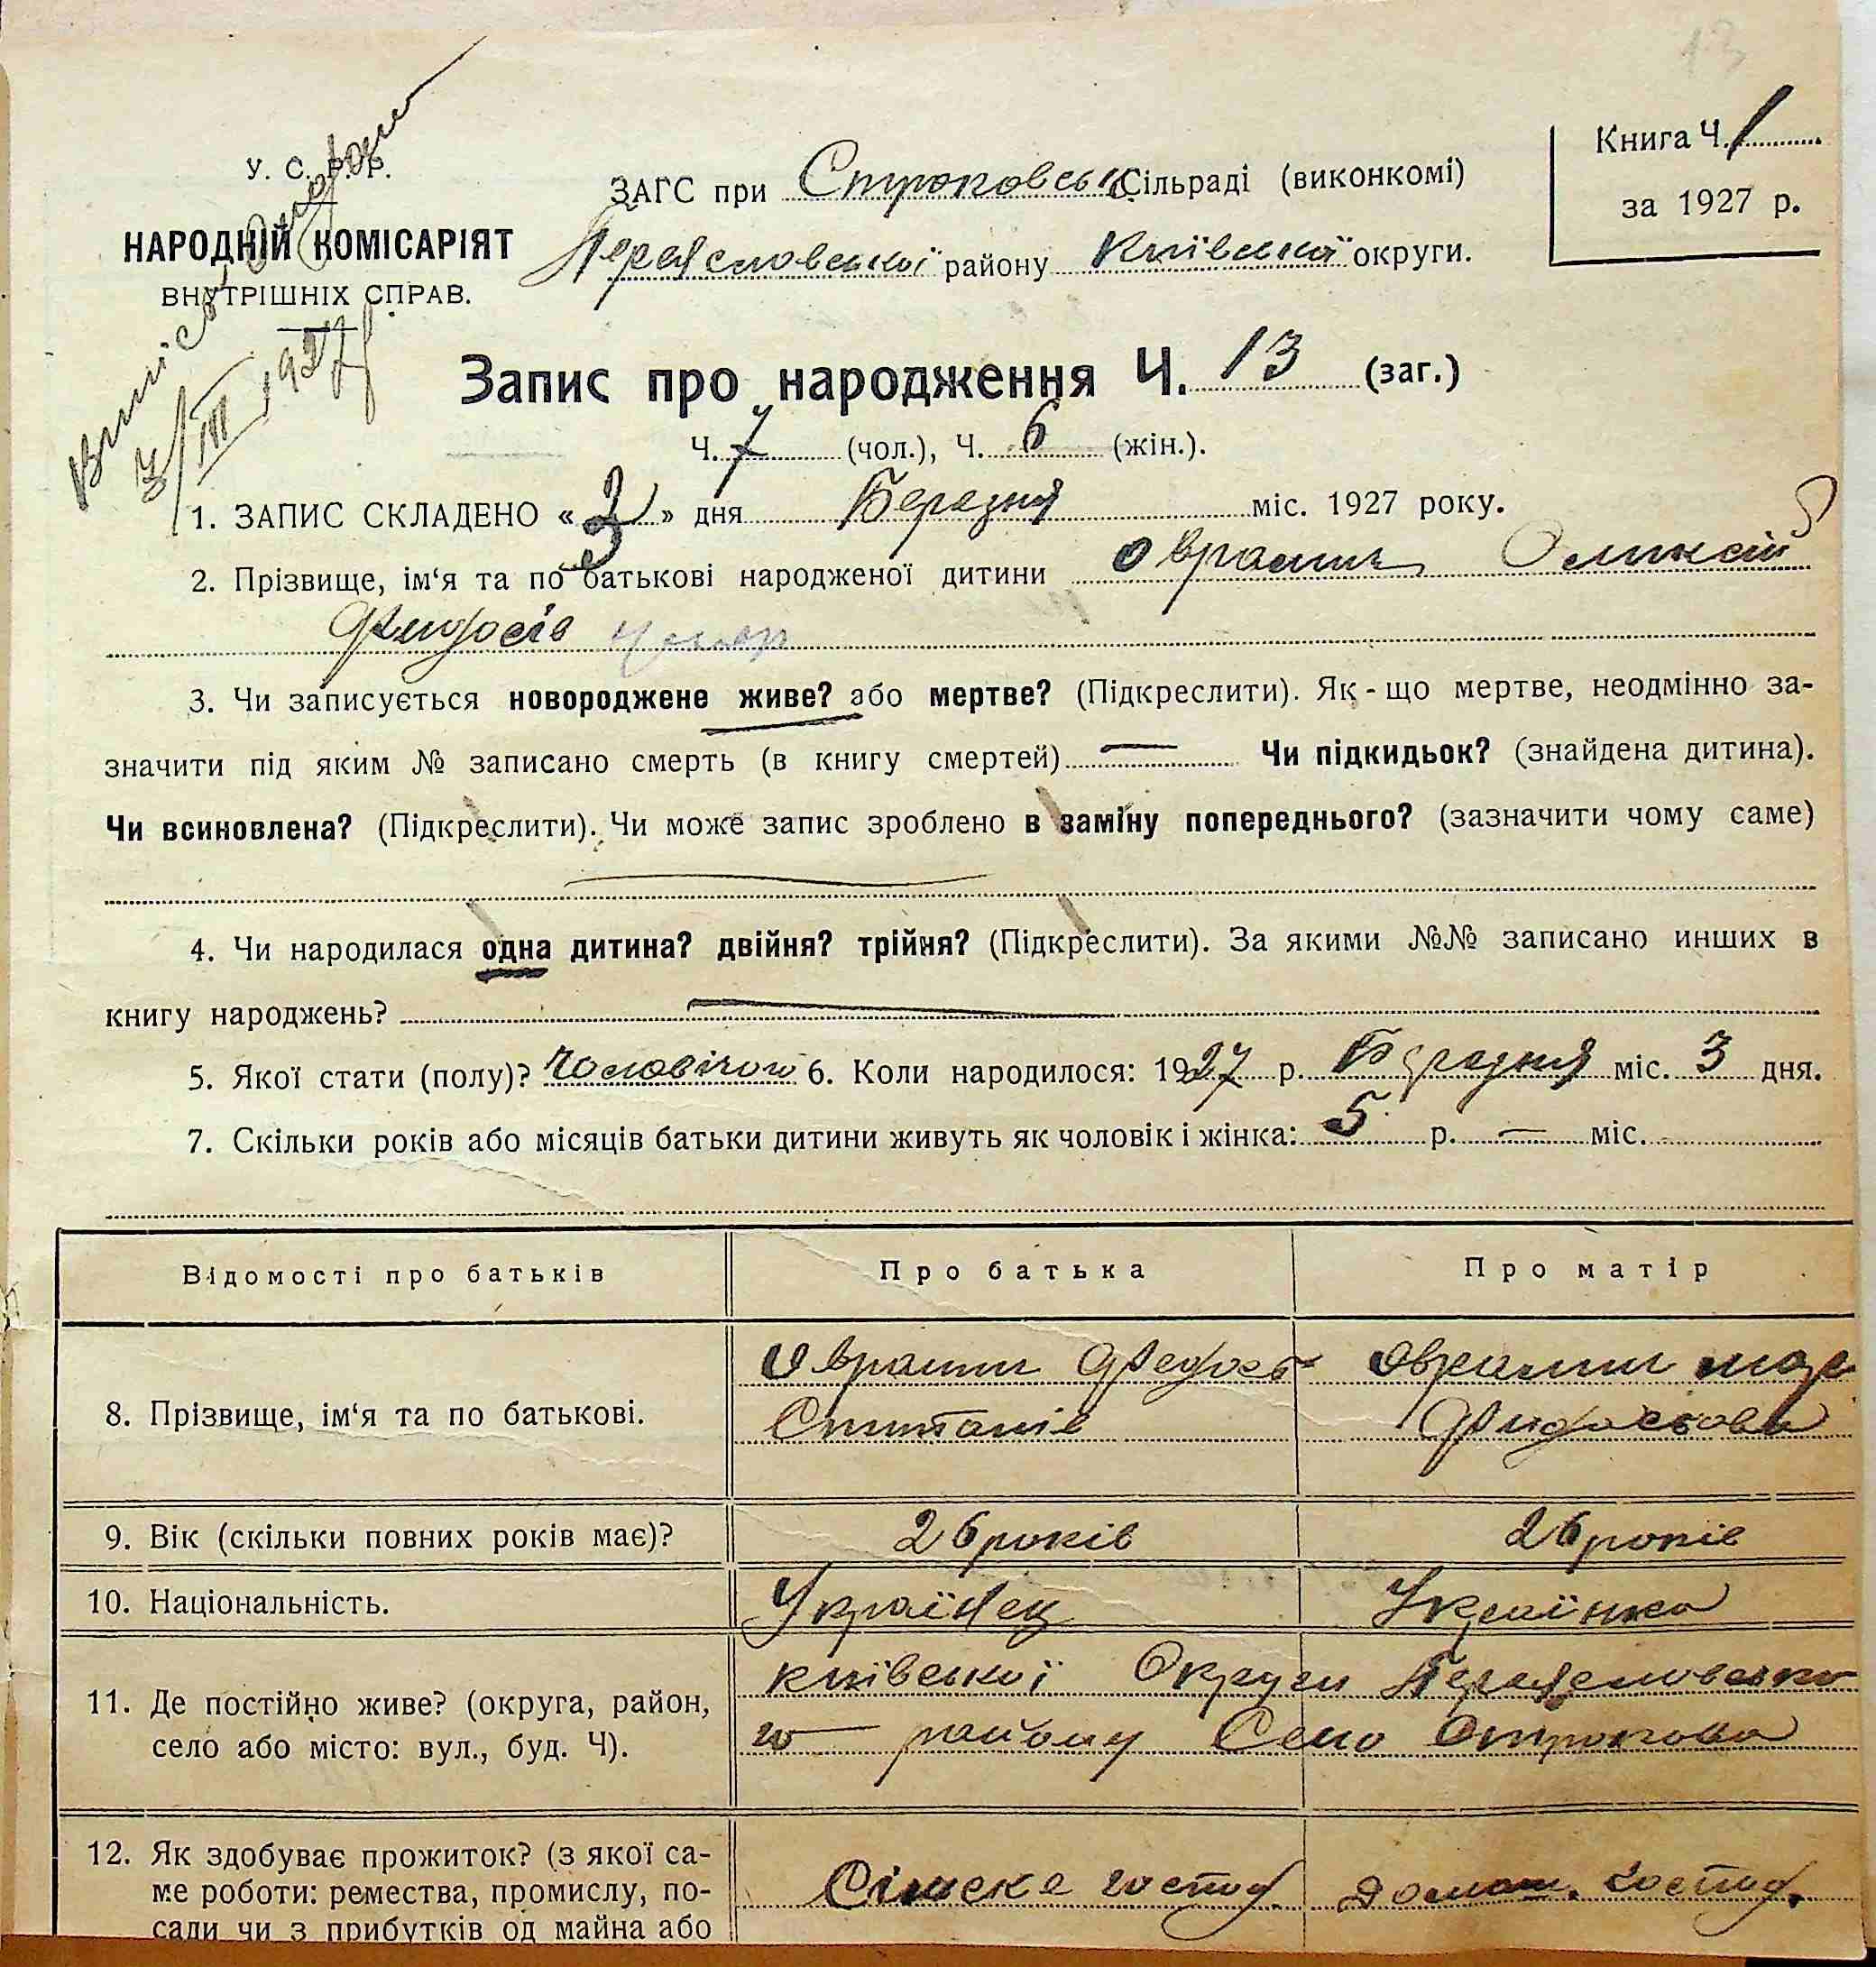 13
У. С. Р. Р.
НАРОДНІЙ КОМІСАРІЯТ
ВНУТРІШНІХ СПРАВ.
3/III 1927р
ЗАГС при Строковськ Сільраді (виконкомі)
Переяславської району Київської округи.
Книга Ч. 1
за 1927 р.
Запис про народження Ч. 13 (заг.)
Ч. 7 (чол.), Ч. 6 (жін.).
1. ЗАПИС СКЛАДЕНО «3» дня Березня міс. 1927 року.
2. Прізвище, ім‘я та по батькові народженої дитини Оврамич Оликсій
Федосів
3. Чи записується новороджене живе? або мертве? (Підкреслити). Як-що мертве, неодмінно за-
значити під яким № записано смерть (в книгу смертей) — Чи підкидьок? (знайдена дитина).
Чи всиновлена? (Підкреслити). Чи може запис зроблено в заміну попереднього? (зазначити чому саме)
4. Чи народилася одна дитина? двійня? трійня? (Підкреслити). За якими №№ записано инших в
книгу народжень?
5. Якої стати (полу)? Чоловічого 6. Коли народилося: 1927 р. Березня міс. 3 дня.
7. Скільки років або місяців батьки дитини живуть як чоловік і жінка: 5 р. — міс.
Відомості про батьків Про батька Про матір
8. Прізвище, ім‘я та по батькові.
Оврамич Федось Оврамич
9. Вік (скільки повних років має)? 26 років 26 років
10. Національність. Українец Українка
11. Де постійно живе? (округа, район,
село або місто: вул., буд. Ч).
Київської Округи Переяславсько
го району Село Строкова
12. Як здобуває прожиток? (з якої са-
ме роботи: ремества, промислу, по-
сади чи з прибутків од майна або
Сільске господ. домаш. господ.